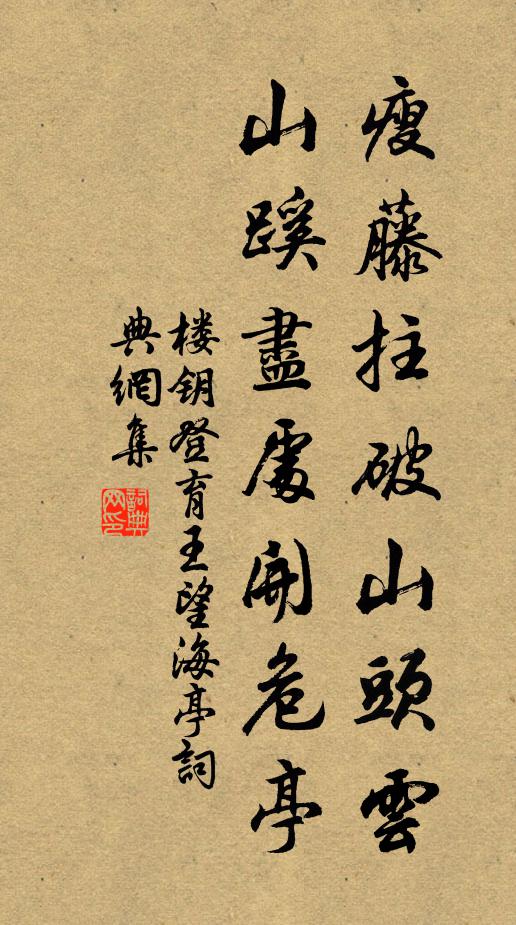 瘦藤拄破山頭雲
山蹊盡處開危亭
楼钥登育王望海亭詞
典網集
詞典
网印